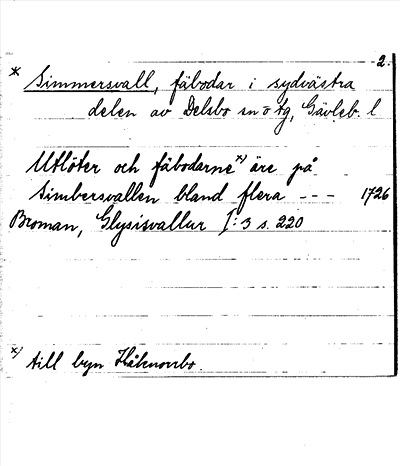 2.
* Simmersvall, fäbodar i sydvästra
delen av Delsbo sn o tg, Gävleb. l
Utlöter och fäbodarne *) äre på
Simbersvallen bland flera --- 1726
Broman, Glysisvallur I:3 s. 220
*) till byn